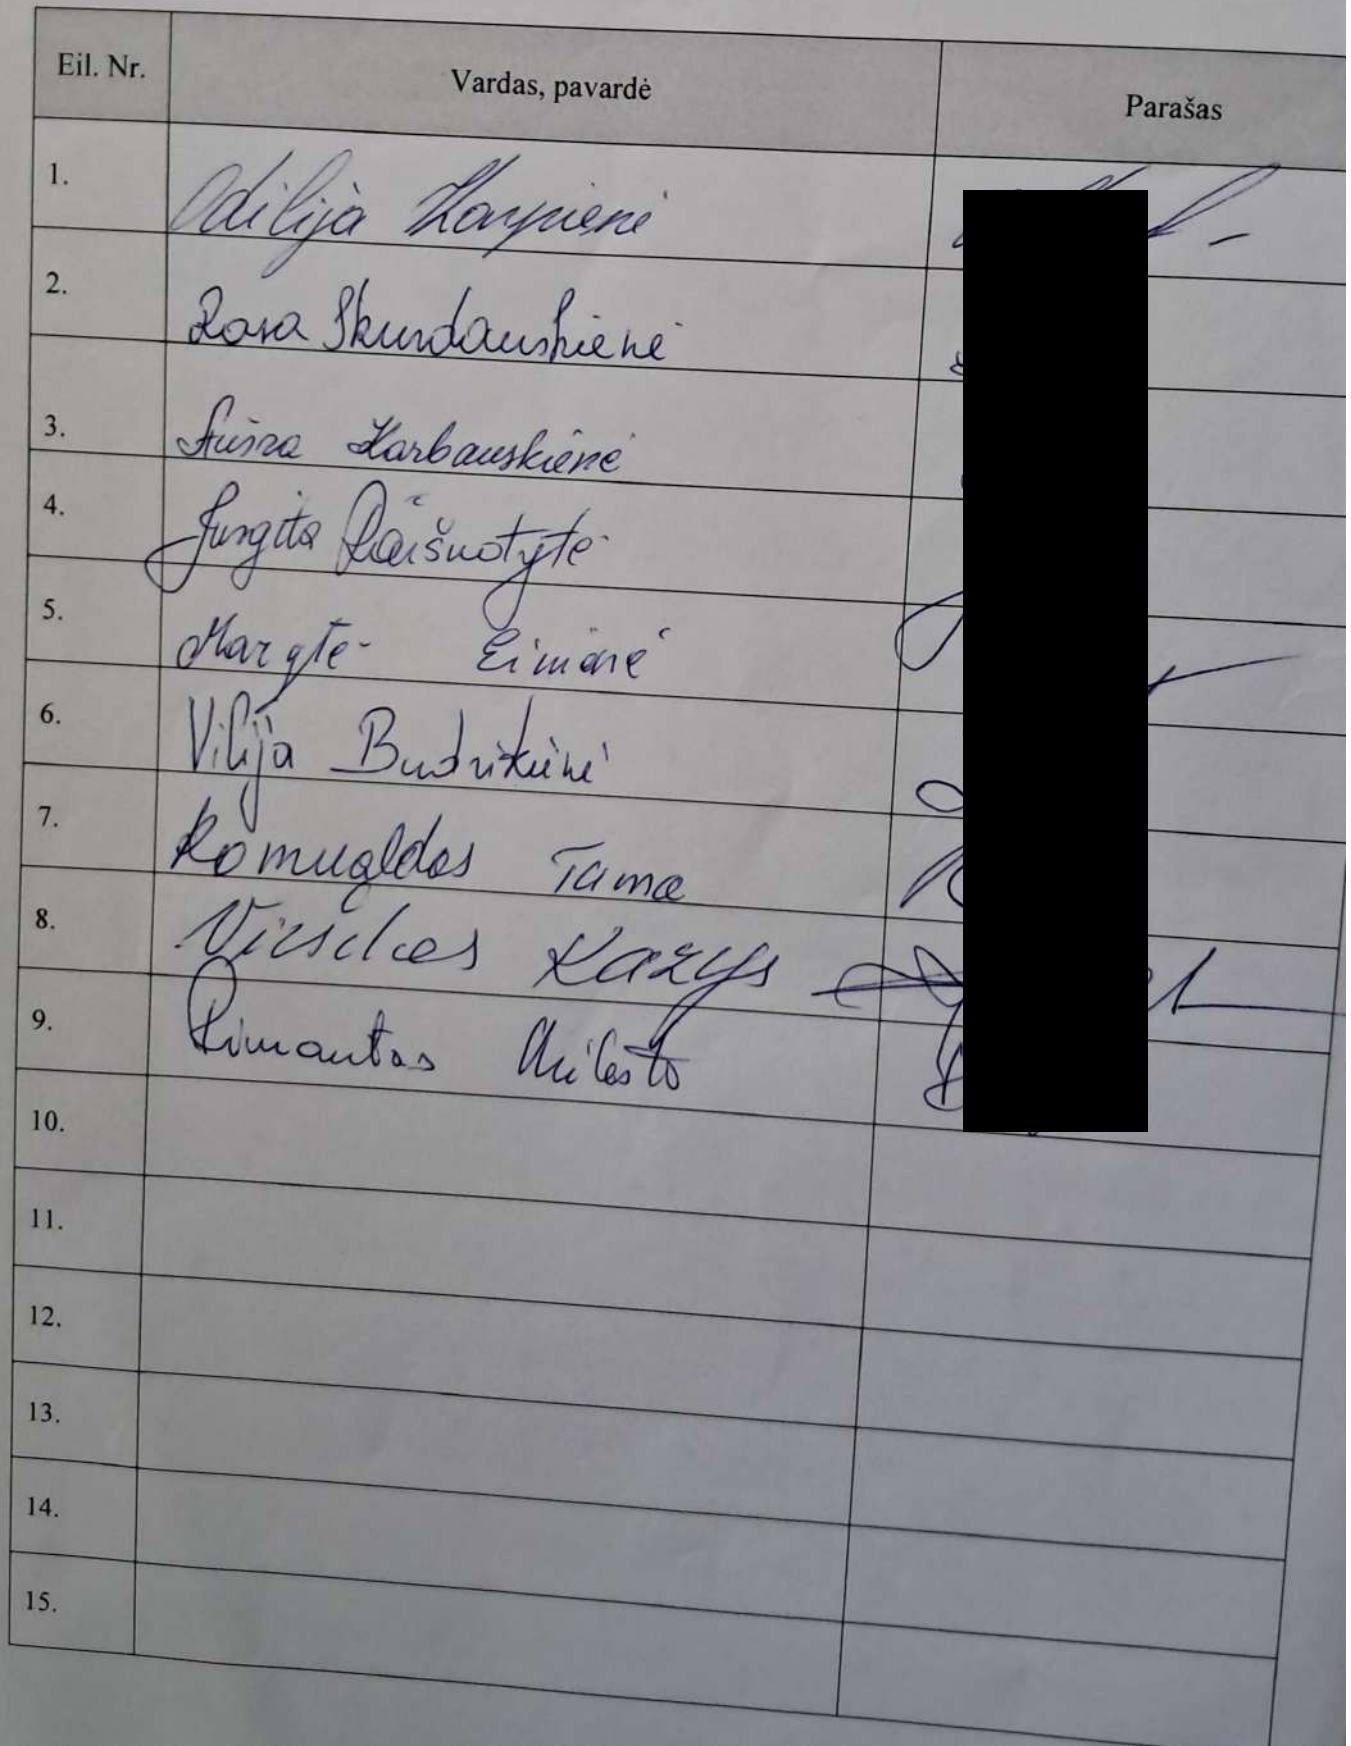 Eil. Nr. Vardas, pavardė Parašas
1. Odilija Karpienė
2. Rasa Skurdauskienė
3. Aušra Karbauskienė
4. Jurgita Raišuotytė
5. Margte Eimonė
6. Vilija Budrikienė
7. Romualdas Tama
8. Kazys
9. Rimantas
10.
11.
12.
13.
14.
15.